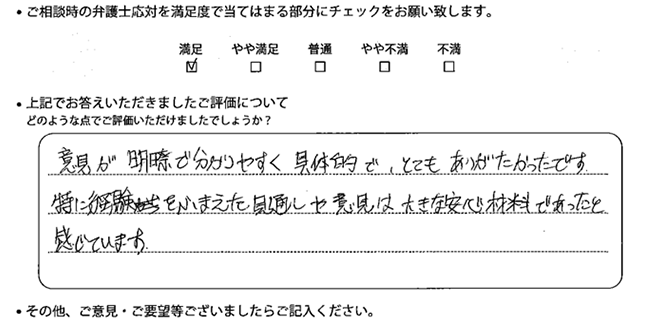 ・ご相談時の弁護士応対を満足度で当てはまる部分にチェックをお願い致します。
満足 やや満足 普通 やや不満 不満
☑ □ □ □ □
・上記でお答えいただきましたご評価について
どのような点でご評価いただけましたでしょうか?
意見が明瞭で分かりやすく具体的で、とてもありがたかったです
特に経験をふまえた見通しや意見は大きな安心材料であったと
感じています
・その他、ご意見・ご要望等ございましたらご記入ください。